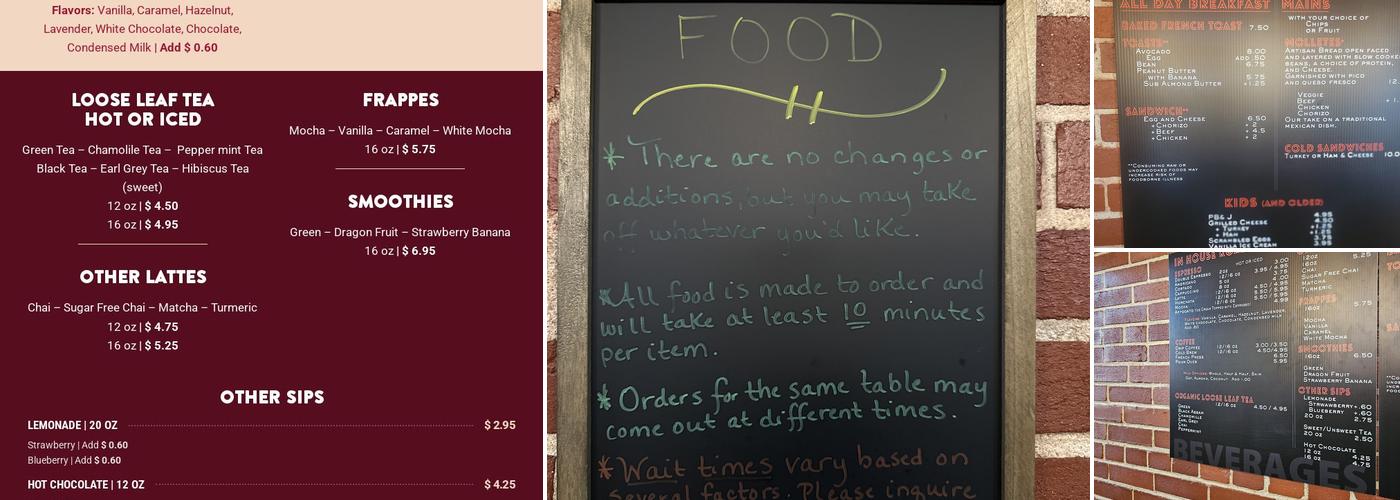 Flavors: Vanilla, Caramel, Hazelnut,
Lavender, White Chocolate, Chocolate,
Condensed Milk | Add $ 0.60
LOOSE LEAF TEA
HOT OR ICED
Green Tea – Chamolile Tea – Pepper mint Tea
Black Tea – Earl Grey Tea – Hibiscus Tea
(sweet)
12 oz | $ 4.50
16 oz | $ 4.95
OTHER LATTES
Chai – Sugar Free Chai – Matcha – Turmeric
12 oz | $ 4.75
16 oz | $ 5.25
FRAPPES
Mocha – Vanilla – Caramel – White Mocha
16 oz | $ 5.75
SMOOTHIES
Green – Dragon Fruit – Strawberry Banana
16 oz | $ 6.95
OTHER SIPS
LEMONADE | 20 OZ $ 2.95
Strawberry | Add $ 0.60
Blueberry | Add $ 0.60
HOT CHOCOLATE | 12 OZ $ 4.25
FOOD
* There are no changes or
additions, but you may take
off whatever you'd like.
*All food is made to order and
will take at least 10 minutes
per item.
* Orders for the same table may
come out at different times.
* Wait times vary based on
several factors. Please inquire
ALL DAY BREAKFAST
BAKED FRENCH TOAST 7.50
TOASTS**
Avocado 8.00
Egg add .50
Bean 6.75
Peanut Butter
with Banana 5.75
Sub Almond Butter +1.25
SANDWICH**
Egg and Cheese 6.50
+Chorizo + 2
+Beef + 4.5
+Chicken + 2
**Consuming raw or
undercooked foods may
increase risk of
foodborne illness
MAINS
with your choice of
Chips
or Fruit
MOLLETES*
Artisan Bread open faced
and layered with slow cooked
beans, a choice of protein,
and Cheese
Garnished with pico
and queso fresco 12.
Veggie
Beef + 1.
Chicken
Chorizo
Our take on a traditional
Mexican dish.
COLD SANDWICHES
Turkey or Ham & Cheese 10.0
KIDS (AND OLDER)
PB& J 4.95
Grilled Cheese 4.50
+ Turkey +1.25
+ Ham +1.25
Scrambled Eggs 3.75
Vanilla Ice Cream 3.95
IN HOUSE
HOT OR ICED
ESPRESSO 2oz 3.00
Double Espresso 12/16 oz 3.95 / 4.95
Americano
Cortado
Cappuccino
Latte
Horchata
Mocha
COFFEE
Drip Coffee 12/16 oz 3.00 /3.50
Cold Brew 12/16 oz 4.50/4.95
French Press 6.50
Pour Over 5.95
ORGANIC LOOSE LEAF TEA
12/16 oz 4.50 / 4.95
Green
Black Assam
Chamomile
Earl Grey
Chai
Peppermint
12oz
16oz 5.25
Chai
Sugar Free Chai
Matcha
Turmeric
FRAPPES
16oz 5.75
Mocha
Vanilla
Caramel
White Mocha
SMOOTHIES
16oz 6.50
Green
Dragon Fruit
Strawberry Banana
OTHER SIPS
Lemonade
Strawberry+.60
Blueberry +.60
20 oz 2.75
Sweet/Unsweet Tea
20 oz 2.50
Hot Chocolate
12 oz 4.25
16 oz 4.75
BEVERAGES